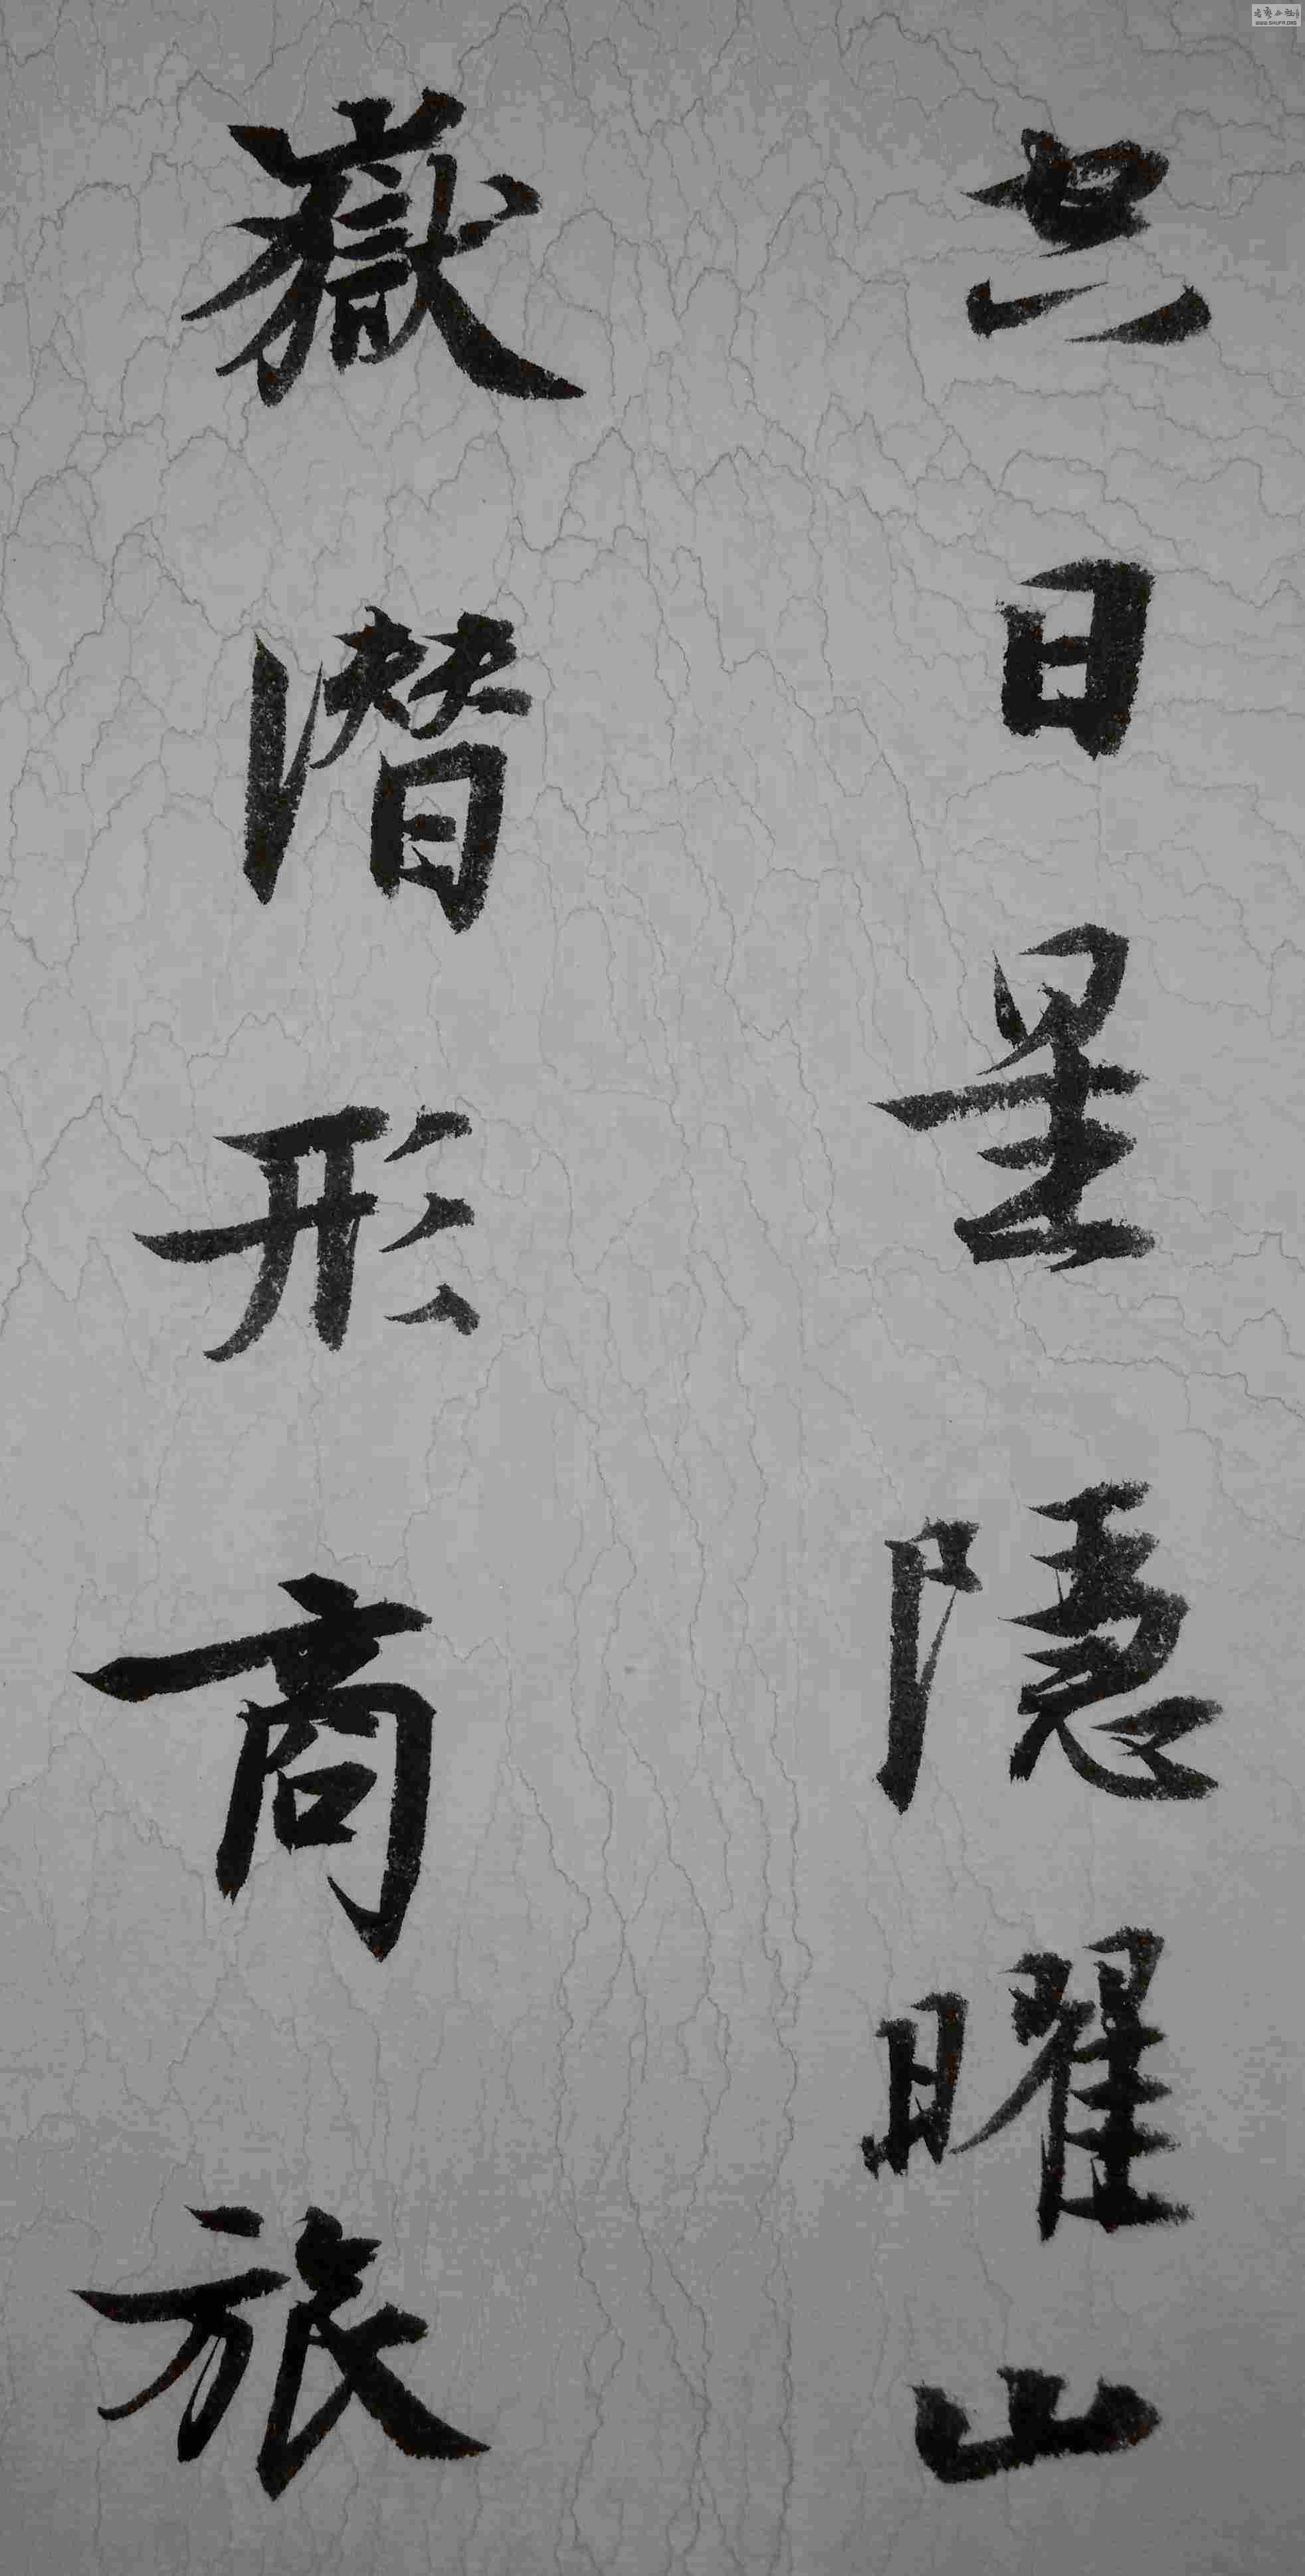 共日星隱曜山
嶽潛形商旅
WWW.SHUFA.ORG